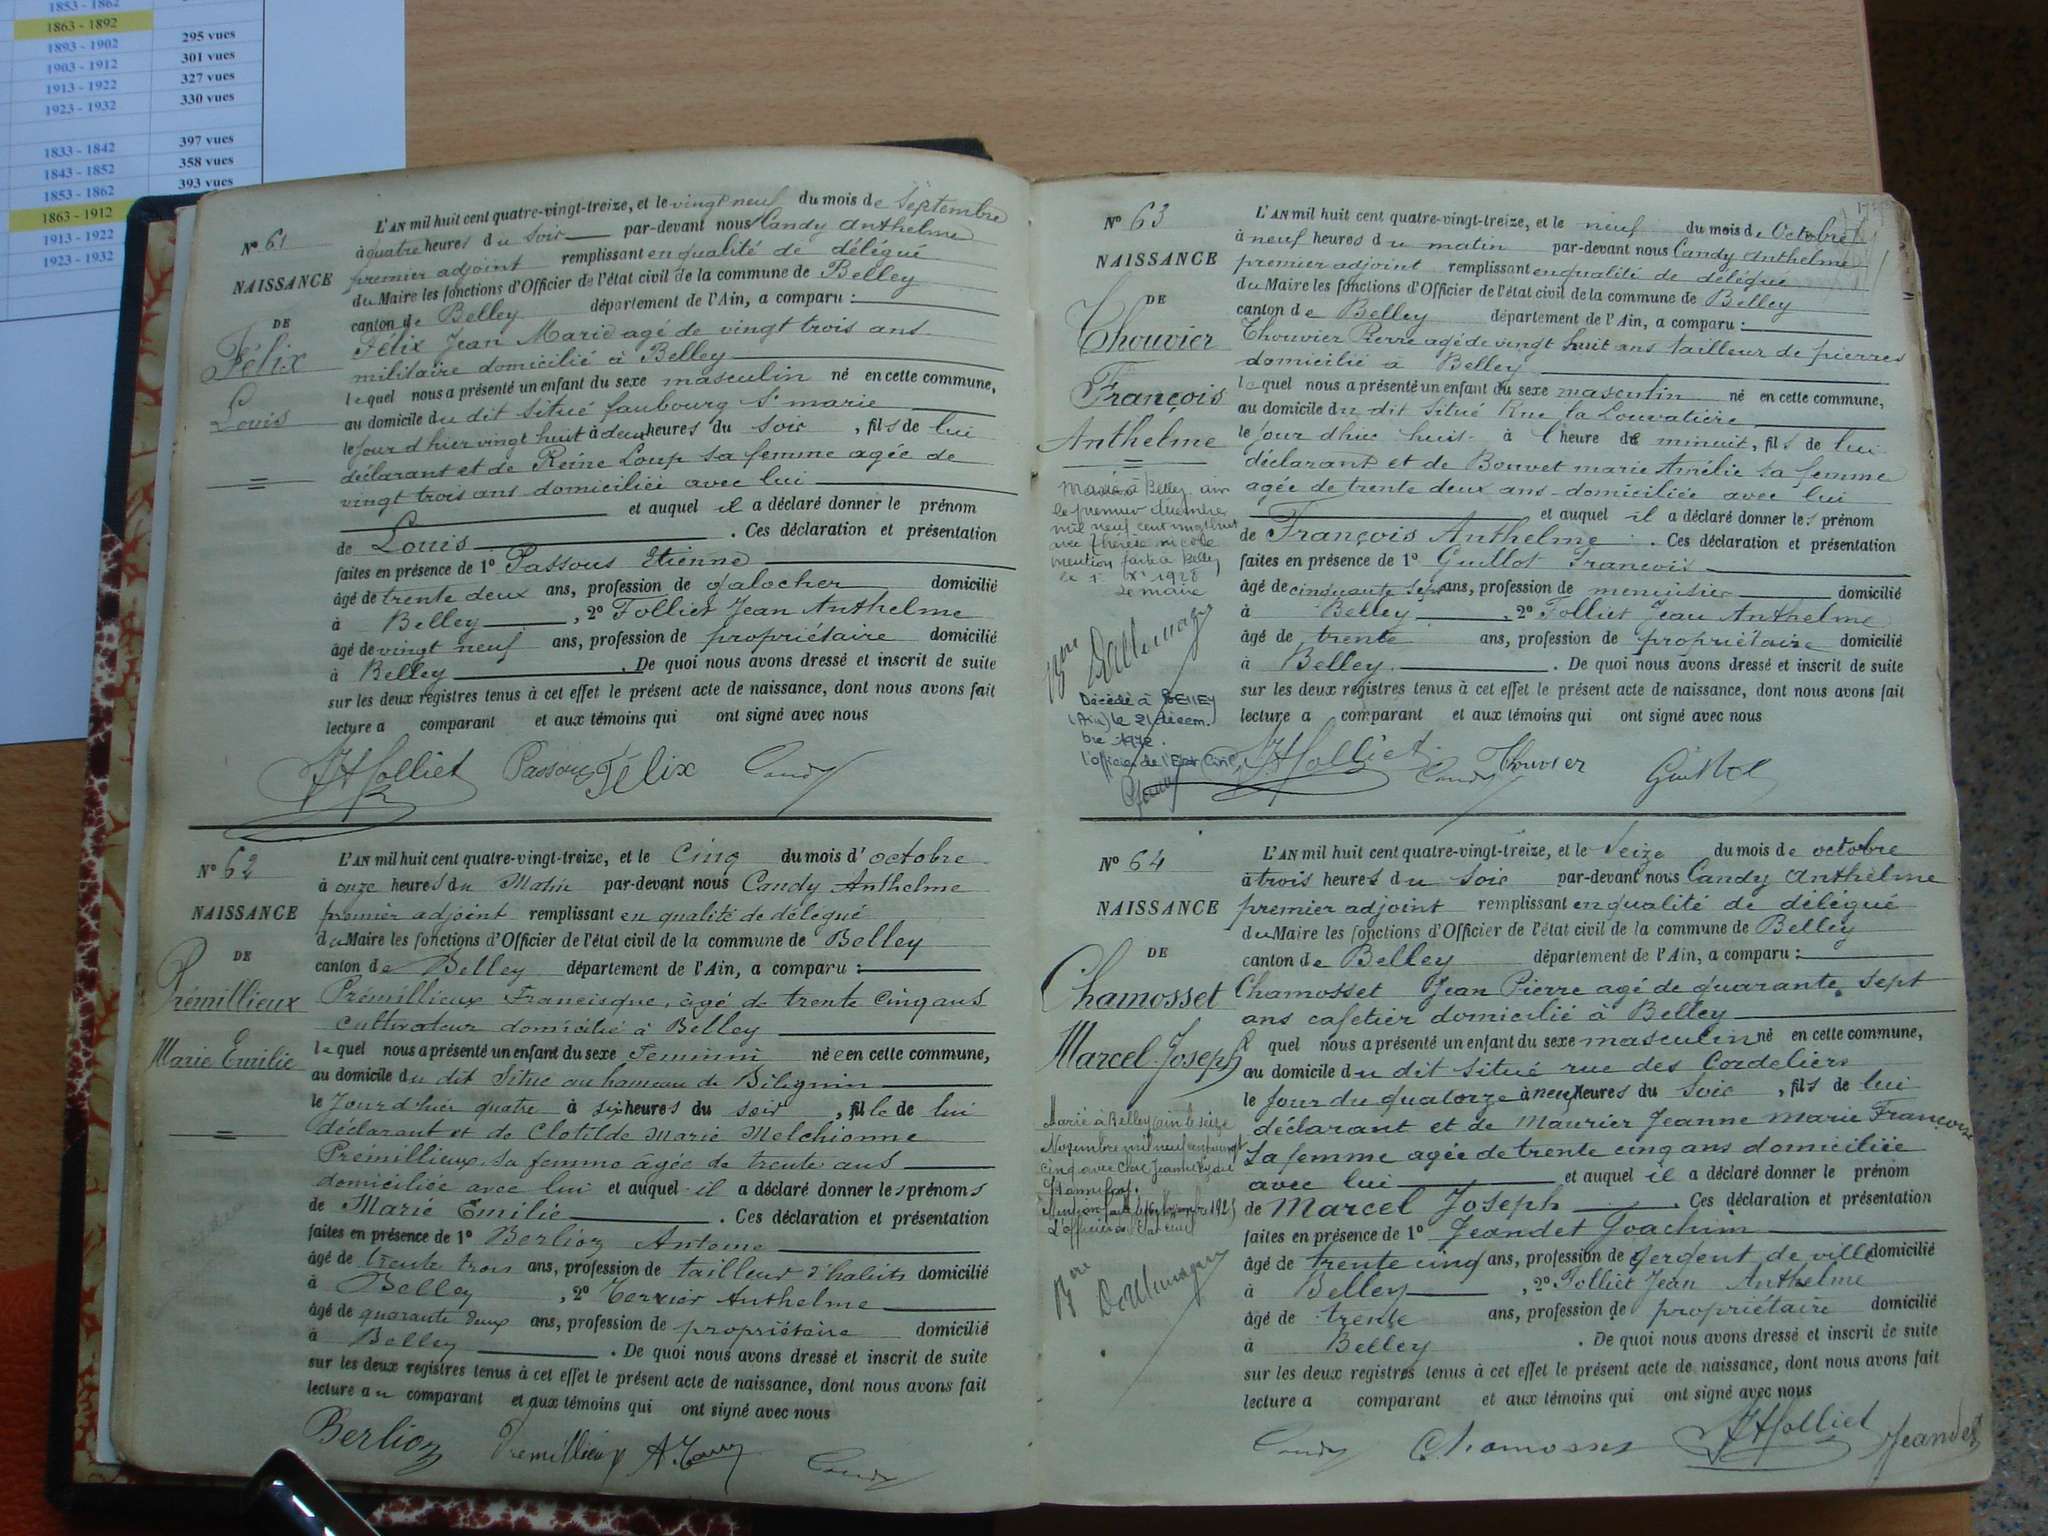 1853 - 1862
1863 - 1892
1893 - 1902 295 vues
1903 - 1912 301 vues
1913 - 1922 327 vues
1923 - 1932 330 vues
1833 - 1842 397 vues
1843 - 1852 358 vues
1853 - 1862 393 vues
1863 - 1912
1913 - 1922
1923 - 1932
N° 61
NAISSANCE
DE
Félix
Louis
L'AN mil huit cent quatre-vingt-treize, et le vingt neuf du mois de Septembre
à quatre heures du soir par-devant nous Candy Anthelme
premier adjoint remplissant en qualité de délégué
du Maire les fonctions d'Officier de l'état civil de la commune de Belley
canton de Belley département de l'Ain, a comparu :
Félix Jean Marie agé de vingt trois ans
militaire domicilié à Belley
lequel nous a présenté un enfant du sexe masculin né en cette commune,
au domicile du dit situé faubourg St marie
le jour d'hier vingt huit à deux heures du soir, fils de lui
déclarant et de Reine Loup sa femme agée de
vingt trois ans domiciliée avec lui
et auquel il a déclaré donner le prénom
de Louis . Ces déclaration et présentation
faites en présence de 1° Passous Etienne
âgé de trente deux ans, profession de galocher domicilié
à Belley , 2° Folliet Jean Anthelme
âgé de vingt neuf ans, profession de propriétaire domicilié
à Belley . De quoi nous avons dressé et inscrit de suite
sur les deux registres tenus à cet effet le présent acte de naissance, dont nous avons fait
lecture a comparant et aux témoins qui ont signé avec nous
JAFolliet Passous Félix Candy
N° 62
NAISSANCE
DE
Prémillieux
Marie Emilie
L'AN mil huit cent quatre-vingt-treize, et le Cinq du mois d'octobre
à onze heures du Matin par-devant nous Candy Anthelme
premier adjoint remplissant en qualité de délégué
du Maire les fonctions d'Officier de l'état civil de la commune de Belley
canton de Belley département de l'Ain, a comparu :
Prémillieux Francisque, âgé de trente cinq ans
cultivateur domicilié à Belley
lequel nous a présenté un enfant du sexe Feminin née en cette commune,
au domicile du dit Situé au hameau de Bilignin
le Jour d'hier quatre à six heures du soir, fille de lui
déclarant et de Clotilde Marie Melchionne
Premillieux, sa femme âgée de trente ans
domiciliée avec lui et auquel il a déclaré donner les prénoms
de Marie Emilie . Ces déclaration et présentation
faites en présence de 1° Berlioz Antoine
âgé de trente trois ans, profession de tailleur d'habits domicilié
à Belley , 2° Terrier Anthelme
âgé de quarante deux ans, profession de propriétaire domicilié
à Belley . De quoi nous avons dressé et inscrit de suite
sur les deux registres tenus à cet effet le présent acte de naissance, dont nous avons fait
lecture au comparant et aux témoins qui ont signé avec nous
Berlioz Premillieux Candy
N° 63
NAISSANCE
DE
Thouvier
François
Anthelme
Marié à Belley ain
le premier décembre
mil neuf cent vingt huit
avec Thérèse Nicole
mention faite à Belley
le 1er Xe 1928
Le maire
Décédé à BELLEY
(Ain) le 21 décem.
bre 1972.
l'officier de l'Etat Civil,
L'AN mil huit cent quatre-vingt-treize, et le neuf du mois de Octobre
à neuf heures du matin par-devant nous Candy Anthelme
premier adjoint remplissant en qualité de délégué
du Maire les fonctions d'Officier de l'état civil de la commune de Belley
canton de Belley département de l'Ain, a comparu :
Thouvier Pierre agé de vingt huit ans tailleur de pierres
domicilié à Belley
lequel nous a présenté un enfant du sexe masculin né en cette commune,
au domicile du dit situé Rue la Louvatière
le jour d'hier huit à l'heure de minuit, fils de lui
déclarant et de Bouvet marie Amélie sa femme
agée de trente deux ans domiciliée avec lui
et auquel il a déclaré donner les prénom
de François Anthelme . Ces déclaration et présentation
faites en présence de 1° Guillot François
âgé de cinquante sept ans, profession de menuisier domicilié
à Belley , 2° Folliet Jean Anthelme
âgé de trente ans, profession de propriétaire domicilié
à Belley . De quoi nous avons dressé et inscrit de suite
sur les deux registres tenus à cet effet le présent acte de naissance, dont nous avons fait
lecture a comparant et aux témoins qui ont signé avec nous
JAFolliet Candy Thouvier Guillot
N° 64
NAISSANCE
DE
Chamosset
Marcel Joseph
Marié à Belley (ain) le seize
Novembre mil neuf cent vingt
cinq avec
L'officier de l'état civil
L'AN mil huit cent quatre-vingt-treize, et le Seize du mois de octobre
à trois heures du soir par-devant nous Candy Anthelme
premier adjoint remplissant en qualité de délégué
du Maire les fonctions d'Officier de l'état civil de la commune de Belley
canton de Belley département de l'Ain, a comparu :
Chamosset Jean Pierre agé de quarante sept
ans cafetier domicilié à Belley
l quel nous a présenté un enfant du sexe masculin né en cette commune,
au domicile du dit situé rue des Cordeliers
le jour du quatorze à neuf heures du soir, fils de lui
déclarant et de Maurier Jeanne Marie Françoise
sa femme agée de trente cinq ans domiciliée
avec lui et auquel il a déclaré donner le prénom
de Marcel Joseph . Ces déclaration et présentation
faites en présence de 1° Jeandet Joachim
âgé de trente cinq ans, profession de sergent de ville domicilié
à Belley , 2° Folliet Jean Anthelme
âgé de trente ans, profession de propriétaire domicilié
à Belley . De quoi nous avons dressé et inscrit de suite
sur les deux registres tenus à cet effet le présent acte de naissance, dont nous avons fait
lecture a comparant et aux témoins qui ont signé avec nous
Candy Chamosset JAFolliet Jeandet